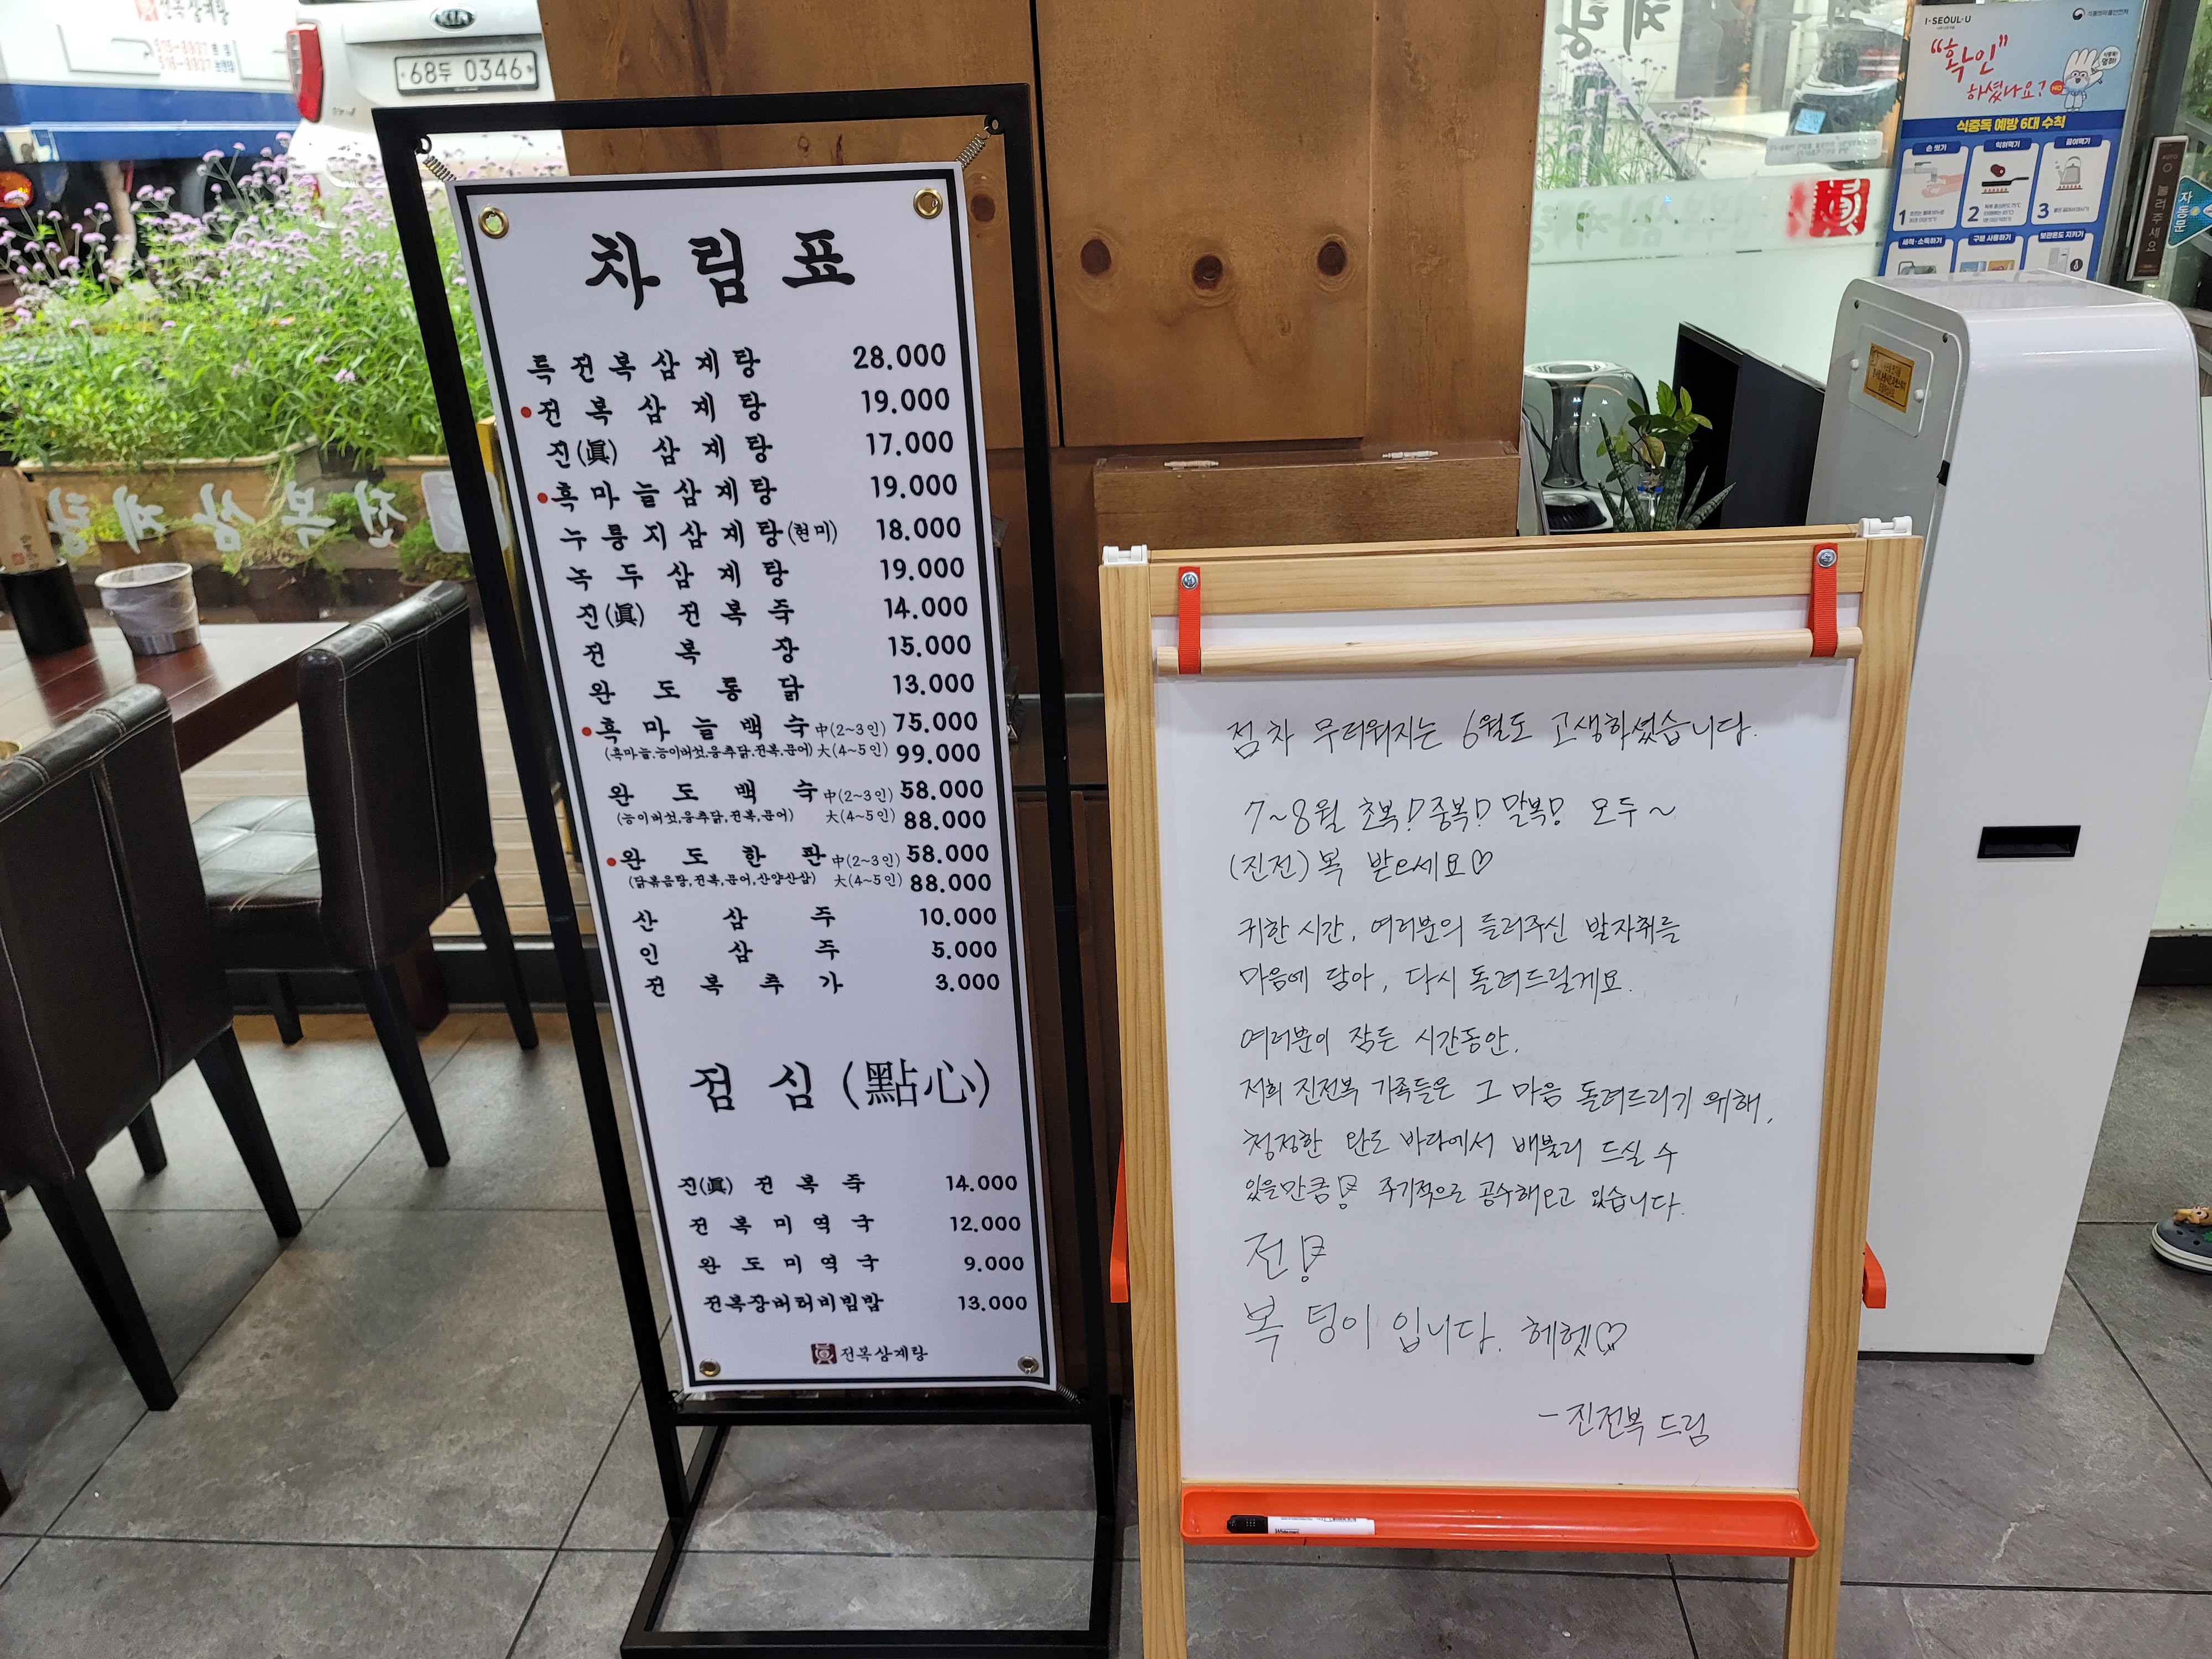 차림표
특전복삼계탕 28.000
전복삼계탕 19.000
진(眞) 삼계탕 17.000
흑마늘삼계탕 19.000
누룽지삼계탕(현미) 18.000
녹두삼계탕 19.000
진(眞) 전복죽 14.000
전복장 15.000
완도통닭 13.000
흑마늘백숙 中(2~3인) 75.000
(흑마늘,능이버섯,웅추닭,전복,문어) 大(4~5인) 99.000
완도백숙 中(2~3인) 58.000
(능이버섯,웅추닭,전복,문어) 大(4~5인) 88.000
완도한판 中(2~3인) 58.000
(닭볶음탕,전복,문어,산양산삼) 大(4~5인) 88.000
산삼주 10.000
인삼주 5.000
전복추가 3.000
점심(點心)
진(眞) 전복죽 14.000
전복미역국 12.000
완도미역국 9.000
전복장버터비빔밥 13.000
전복삼계탕
점차 무더워지는 6월도 고생하셨습니다.
7~8월 초복! 중복! 말복! 모두~
(진전)복 받으세요♡
귀한 시간, 여러분의 들러주신 발자취를
마음에 담아, 다시 돌려드릴게요.
여러분이 잠든 시간동안,
저희 진전복 가족들은 그 마음 돌려드리기 위해,
청정한 완도 바다에서 배불리 드실 수
있을만큼! 주기적으로 공수해오고 있습니다.
전!
복 덩이 입니다. 헤헷♡
- 진전복 드림
KIA
68두 0346
전복삼계탕
515-8937
516-8937
전복삼계탕
I·SEOUL·U
식품의약품안전처
"확인"
하셨나요?
식중독 예방 6대 수칙
손 씻기
익혀먹기
끓여먹기
1
2
3
세척·소독하기
구분 사용하기
보관온도 지키기
눌러주세요
자동문